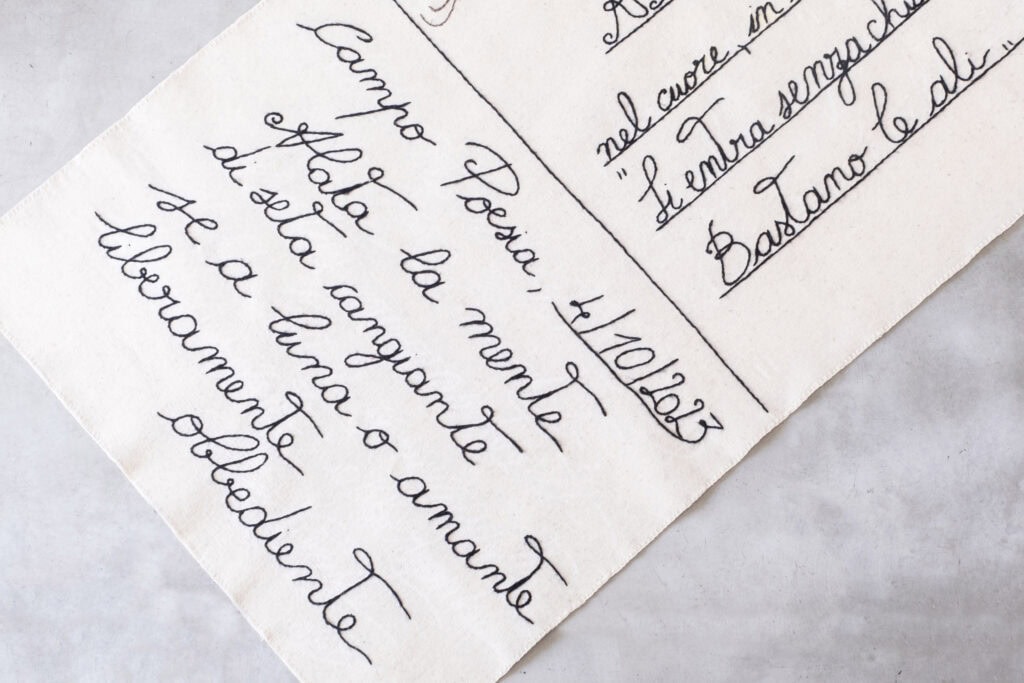 Campo Poesia, 4/10/2023
Alata la mente
di seta cangiante
se a luna o amante
liberamente
obbediente
nel cuore, in
"Si entra senza
Bastano le ali"